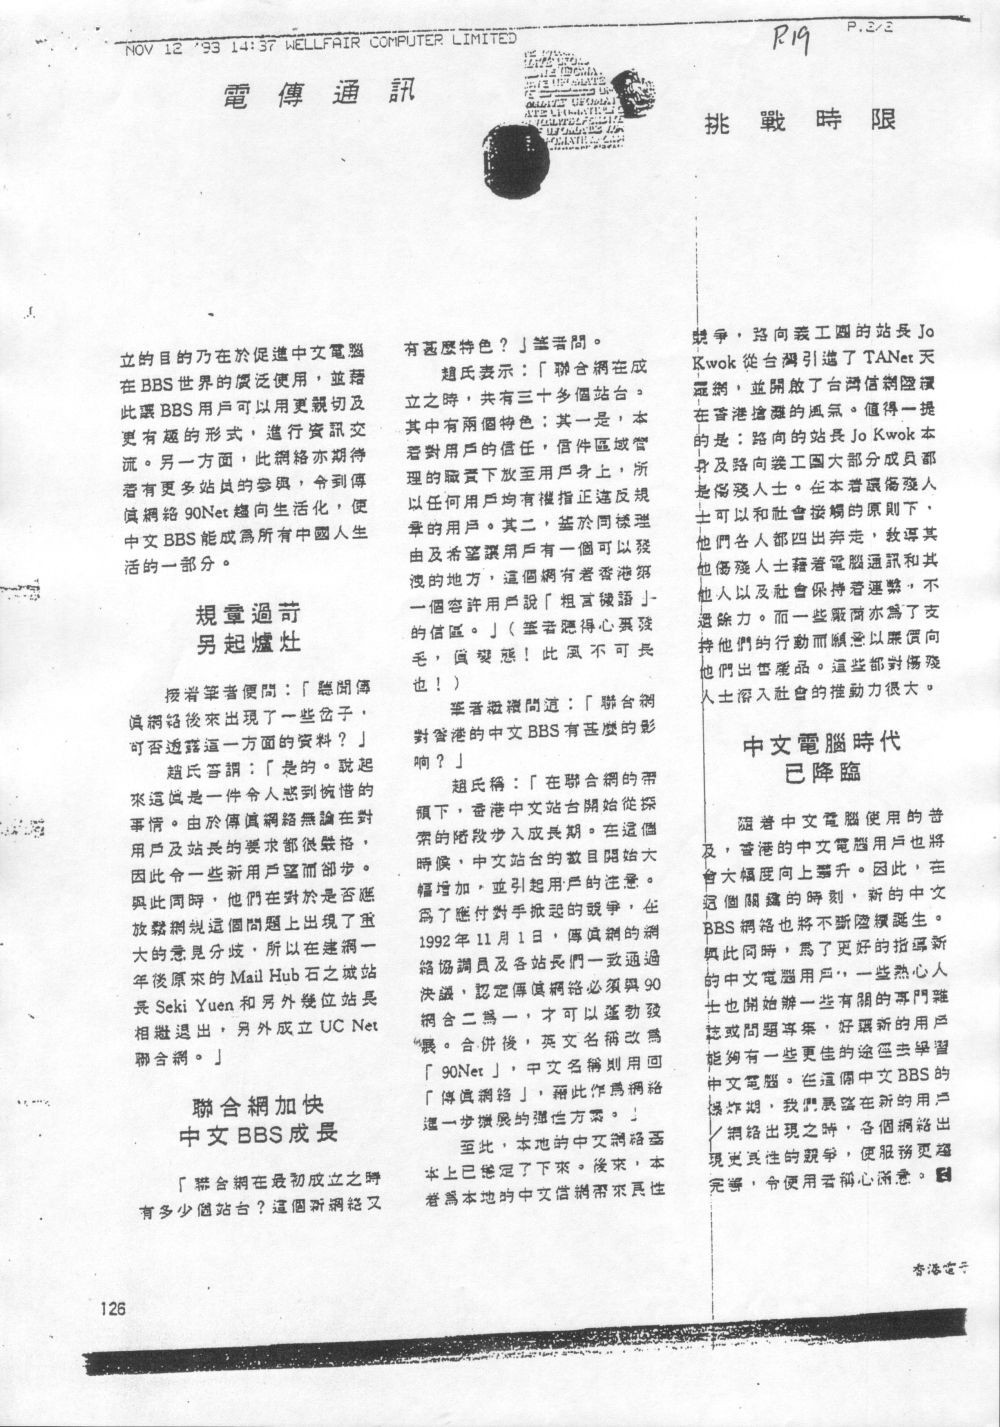 NOV 12 '93 14:37 WELLFAIR COMPUTER LIMITED
P.2/2
P.19
電傳通訊
挑戰時限
立的目的乃在於促進中文電腦
在BBS世界的廣泛使用，並藉
此讓BBS用戶可以用更親切及
更有趣的形式，進行資訊交
流。另一方面，此網絡亦期待
着有更多站員的參與，令到傳
眞網絡90Net趨向生活化，使
中文BBS能成爲所有中國人生
活的一部分。
規章過苛
另起爐灶
接着筆者便問：「聽聞傳
眞網絡後來出現了一些岔子，
可否透露這一方面的資料？」
趙氏答謂：「是的。說起
來這眞是一件令人感到惋惜的
事情。由於傳眞網絡無論在對
用戶及站長的要求都很嚴格，
因此令一些新用戶望而卻步。
與此同時，他們在對於是否應
放鬆網規這個問題上出現了重
大的意見分歧，所以在建網一
年後原來的Mail Hub石之城站
長Seki Yuen和另外幾位站長
相繼退出，另外成立UC Net
聯合網。」
聯合網加快
中文BBS成長
「聯合網在最初成立之時
有多少個站台？這個新網絡又
有甚麼特色？」筆者問。
趙氏表示：「聯合網在成
立之時，共有三十多個站台。
其中有兩個特色：其一是，本
着對用戶的信任，信件區域管
理的職責下放至用戶身上，所
以任何用戶均有權指正違反規
章的用戶。其二，基於同樣理
由及希望讓用戶有一個可以發
洩的地方，這個網有着香港第
一個容許用戶說「粗言穢語」
的信區。」（筆者聽得心裏發
毛，眞變態！此風不可長
也！）
筆者繼續問道：「聯合網
對香港的中文BBS有甚麼的影
响？」
趙氏稱：「在聯合網的帶
領下，香港中文站台開始從探
索的階段步入成長期。在這個
時候，中文站台的數目開始大
幅增加，並引起用戶的注意。
爲了應付對手掀起的競爭，在
1992年11月1日，傳眞網的網
絡協調員及各站長們一致通過
決議，認定傳眞網絡必須與90
網合二爲一，才可以蓬勃發
展。合併後，英文名稱改爲
「90Net」，中文名稱則用回
「傳眞網絡」，藉此作爲網絡
進一步擴展的彈性方案。」
至此，本地的中文網絡基
本上已穩定了下來。後來，本
着爲本地的中文信網帶來良性
競爭，路向義工團的站長Jo
Kwok從台灣引進了TANet天
羅網，並開啟了台灣信網陸續
在香港搶灘的風氣。值得一提
的是：路向的站長Jo Kwok本
身及路向義工團大部分成員都
是傷殘人士。在本着讓傷殘人
士可以和社會接觸的原則下，
他們各人都四出奔走，敎導其
他傷殘人士藉着電腦通訊和其
他人以及社會保持着連繫，不
遺餘力。而一些廠商亦爲了支
持他們的行動而願意以廉價向
他們出售產品。這些都對傷殘
人士溶入社會的推動力很大。
中文電腦時代
已降臨
隨着中文電腦使用的普
及，香港的中文電腦用戶也將
會大幅度向上攀升。因此，在
這個關鍵的時刻，新的中文
BBS網絡也將不斷陸續誕生。
與此同時，爲了更好的指導新
的中文電腦用戶，一些熱心人
士也開始辦一些有關的專門雜
誌或問題專集，好讓新的用戶
能夠有一些更佳的途徑去學習
中文電腦。在這個中文BBS的
爆炸期，我們展望在新的用戶
／網絡出現之時，各個網絡出
現更良性的競爭，使服務更趨
完善，令使用者稱心滿意。
香港電子
126